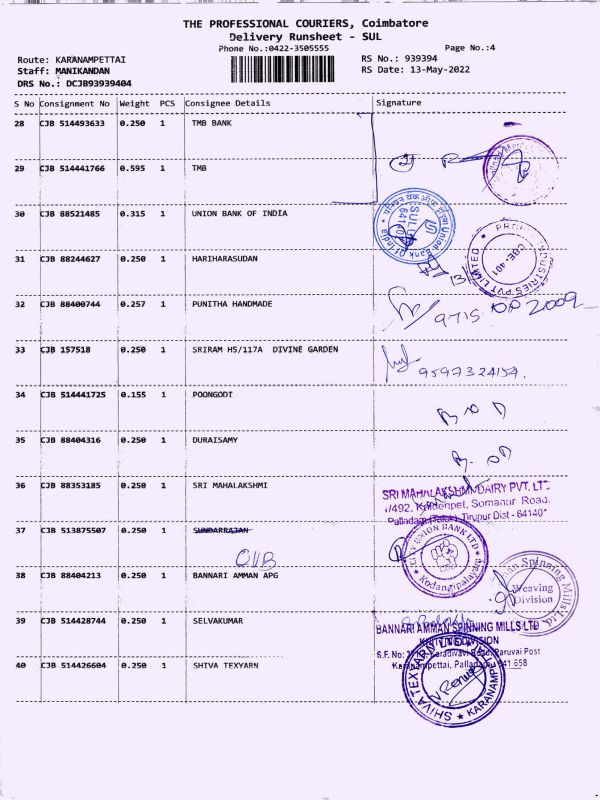 THE PROFESSIONAL COURIERS, Coimbatore
Delivery Runsheet - SUL
Phone No.:0422-3505555 Page No.:4
Route: KARANAMPETTAI RS No.: 939394
Staff: MANIKANDAN RS Date: 13-May-2022
DRS No.: DCJB93939404
S No Consignment No Weight PCS Consignee Details Signature
28 CJB 514493633 0.250 1 TMB BANK
29 CJB 514441766 0.595 1 TMB
30 CJB 88521485 0.315 1 UNION BANK OF INDIA
Union Bank Of India SULUR
31 CJB 88244627 0.250 1 HARIHARASUDAN
INDUSTRIES PVT LIMITED CBE-401
32 CJB 88400744 0.257 1 PUNITHA HANDMADE
33 CJB 157518 0.250 1 SRIRAM H5/117A DIVINE GARDEN
9597324154.
34 CJB 514441725 0.155 1 POONGODI
35 CJB 88404316 0.250 1 DURAISAMY
36 CJB 88353185 0.250 1 SRI MAHALAKSHMI
SRI MAHALAKSHMI DAIRY PVT. LT
/492, Somanur Road,
Palladam Tirupur Dist - 64140
37 CJB 513875507 0.250 1 SUNDARRAJAN
CUB
CITY UNION BANK LTD Kodangipalayam
38 CJB 88404213 0.250 1 BANNARI AMMAN APG
Spinning Mills Ltd Weaving Division
39 CJB 514428744 0.250 1 SELVAKUMAR
BANNARI AMMAN SPINNING MILLS LTD
KNITTING DIVISION
S.F. No: Karadivavi Road, Paruvai Post
Karanampettai, Palladam 641 658
40 CJB 514426604 0.250 1 SHIVA TEXYARN
SHIVA TEXYARN LIMITED KARANAMPET